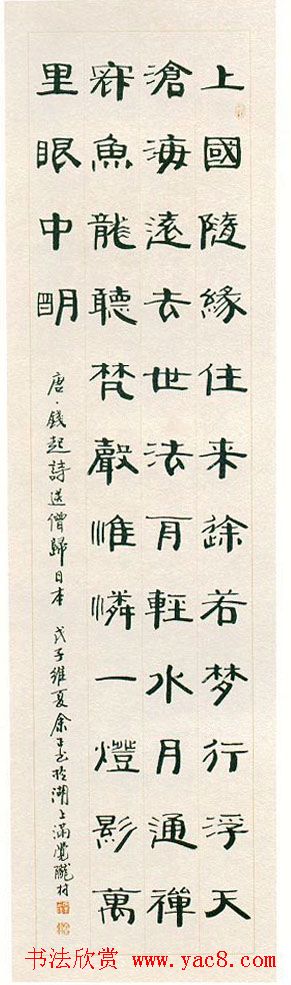 上國隨緣住来途若梦行浮天
滄海遠去世法舟輕水月通禪
寂魚龍聽梵聲惟憐一燈影萬
里眼中明
唐·錢起詩送僧歸日本 戊子維夏余 於湖上滿覺隴村
书法欣赏 www.yac8.com